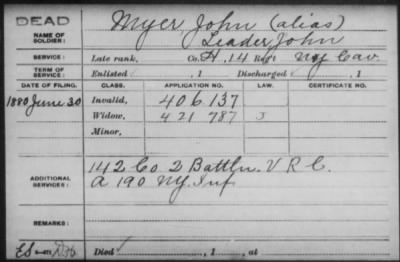 DEAD
Myer John (alias)
Leader, John
NAME OF SOLDIER:
SERVICE: Late rank, Co. H, 14 Reg't NY Cav.
TERM OF SERVICE: Enlisted , 1 Discharged , 1
DATE OF FILING. CLASS. APPLICATION NO. LAW. CERTIFICATE NO.
1880 June 30 Invalid, 406.137
Widow, 421 787 3
Minor,
ADDITIONAL SERVICES:
142 Co 2 Battln. V R C.
A 190 NY. Inf
REMARKS:
Died , 1 , at